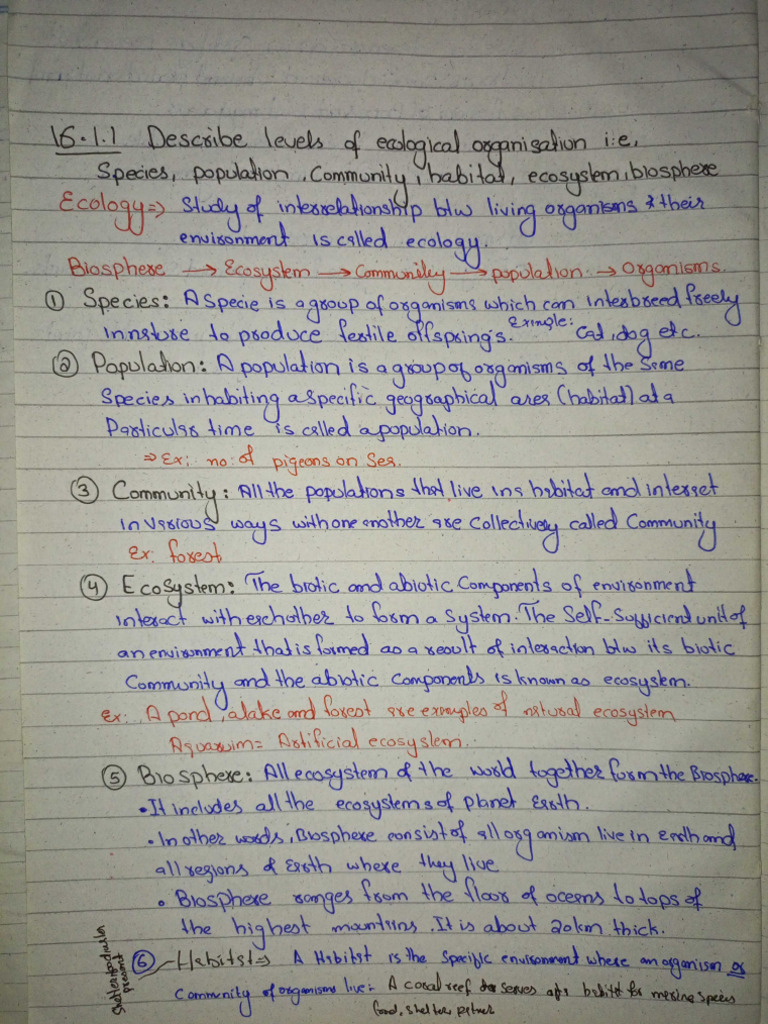 16.1.1 Describe levels of ecological organisation i.e,
Species, population, Community, habitat, ecosystem, biosphere
Ecology => Study of interrelationship btw living organisms & their
environment is called ecology.
Biosphere → Ecosystem → Community → population → Organisms.
① Species: A Specie is a group of organisms which can Interbreed freely
in nature to produce fertile offspring's. Example: Cat, dog etc.
② Population: A population is a group of organisms of the Same
Species inhabiting a specific geographical area (habitat) at a
Particular time is called a population.
⇒ Ex; no: of pigeons on Sea.
③ Community: All the populations that live in a habitat and interact
in various ways with one another are Collectively called Community
Ex: forest
④ Ecosystem: The biotic and abiotic Components of environment
interact with each other to form a System. The Self-Sufficient unit of
an environment that is formed as a result of interaction btw its biotic
Community and the abiotic components is known as ecosystem.
Ex: A pond, a lake and forest are examples of natural ecosystem
Aquarium = Artificial ecosystem.
⑤ Biosphere: All ecosystem of the world together form the Biosphere.
• It includes all the ecosystems of planet Earth.
• In other words, Biosphere consist of all organism live in earth and
all regions of Earth where they live
• Biosphere ranges from the floor of oceans to tops of
the highest mountains. It is about 20km thick.
⑥ Habitat => A Habitat is the specific environment where an organism or
Community of organisms live: A coral reef serves as a habitat for marine species
food, shelter partner
present